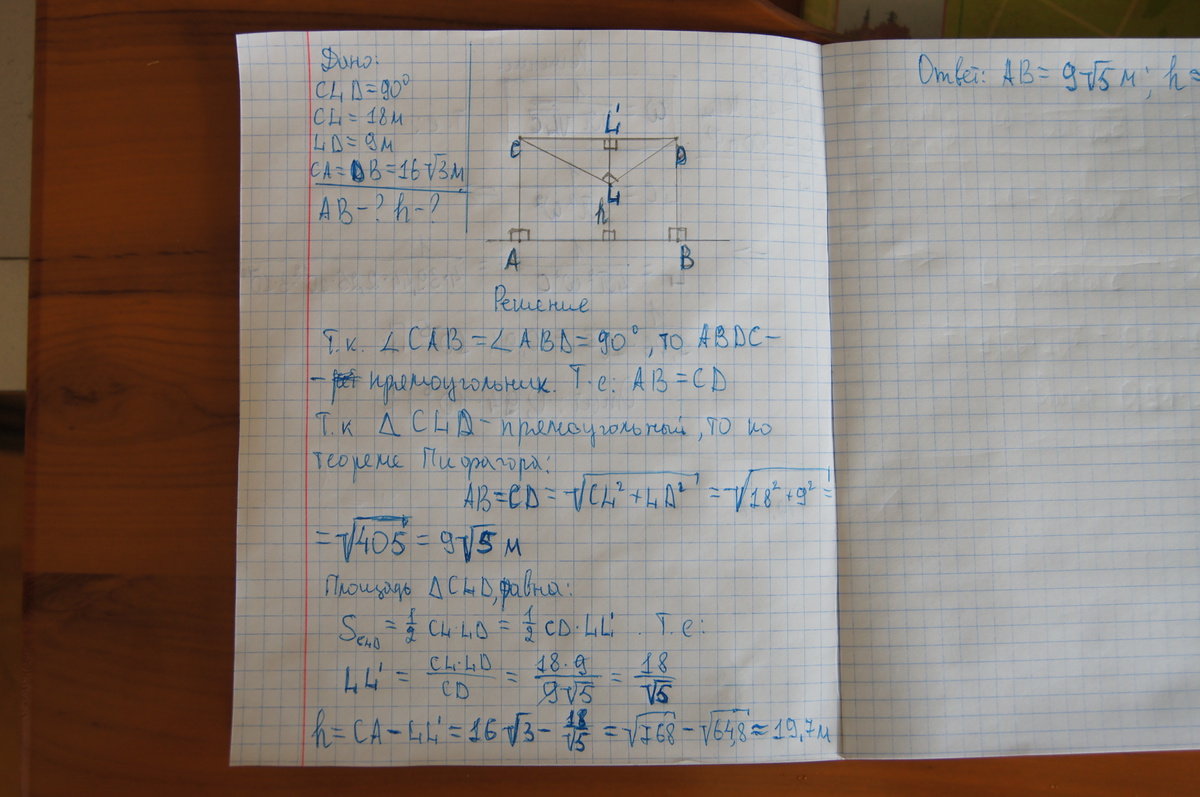 Дано:
CLD=90°
CL=18м
LD=9м
CA=DB=16√3м
AB-? h-?
L'
C
D
L
h
A
B
Решение
Т.к. ∠CAB=∠ABD=90°, то ABDC-
- прямоугольник. Т.е: AB=CD
Т.к △CLD-прямоугольный, то по
теореме Пифагора:
AB=CD=√CL²+LD² =√18²+9² =
=√405 = 9√5 м
Площадь △CLD, равна:
S_CLD = 1/2 CL·LD = 1/2 CD·LL'. Т.е:
LL' = CL·LD/CD = 18·9/9√5 = 18/√5
h=CA-LL'=16√3-18/√5 =√768 -√64,8 ≈19,7м
Ответ: AB=9√5м; h=